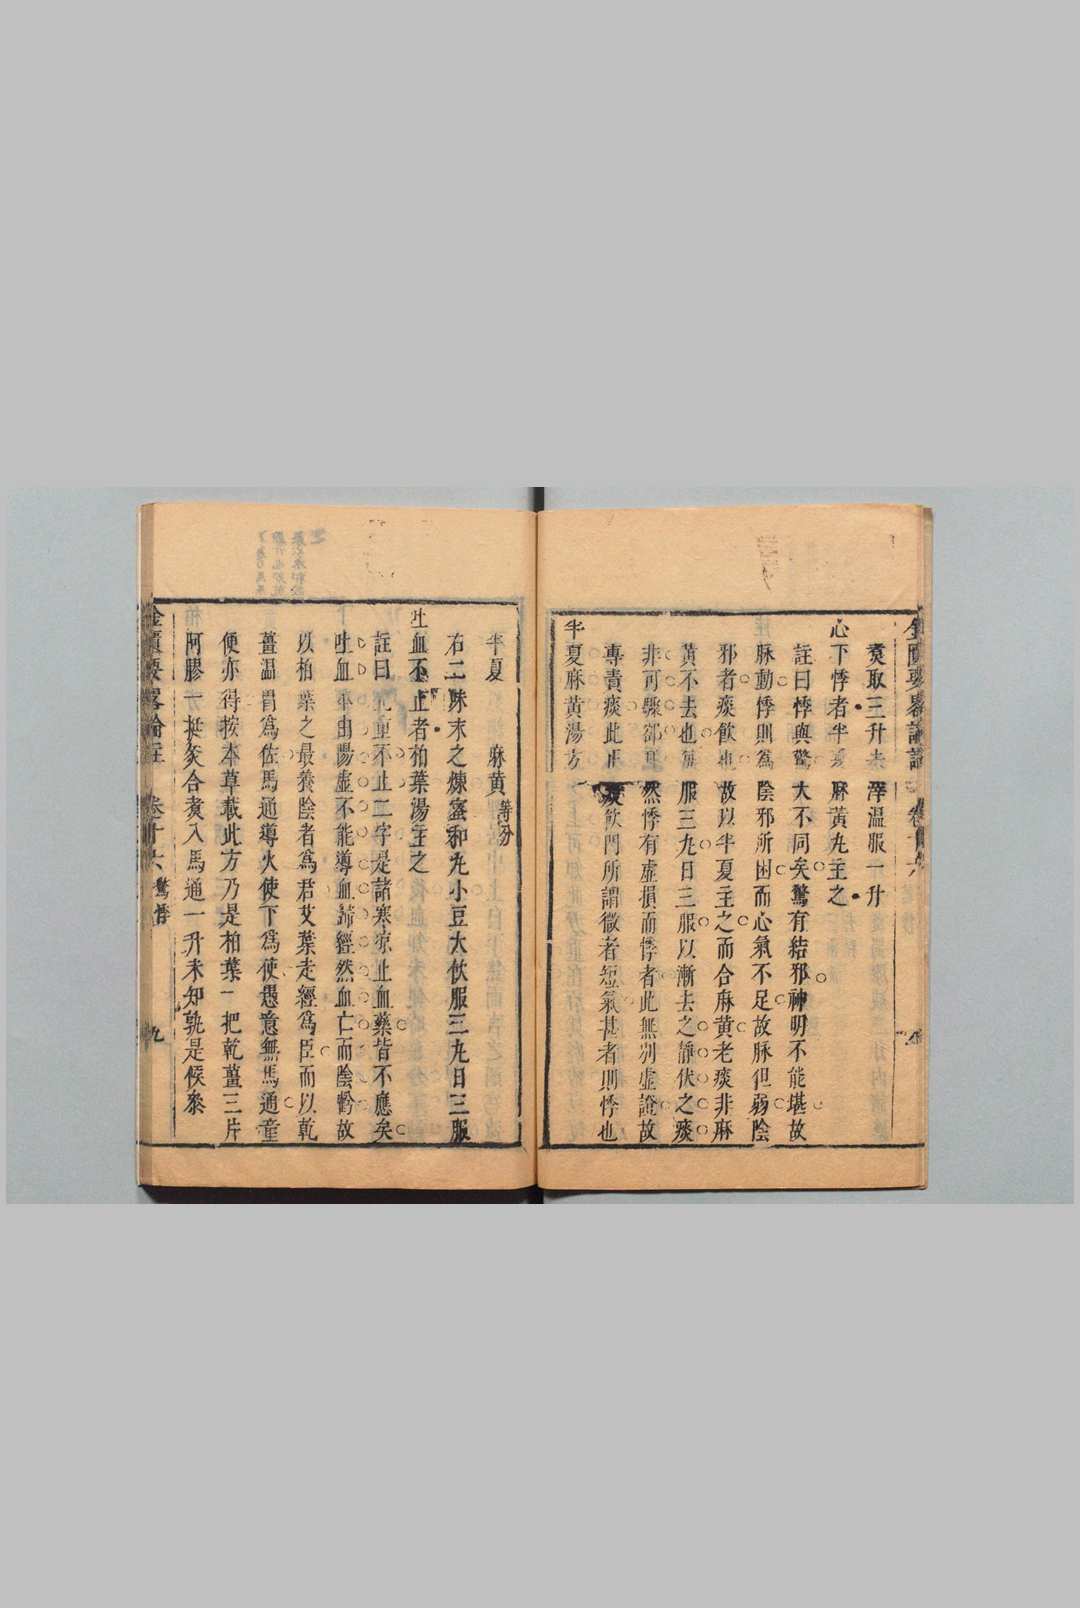 煑取三升去滓温服一升
心下悸者半夏麻黃丸主之
註曰悸與驚大不同矣驚有結邪神明不能堪故
脉動悸則爲陰邪所困而心氣不足故脉但弱陰
邪者痰飲也故以半夏主之而合麻黃老痰非麻
黃不去也每服三丸日三服以漸去之靜伏之痰
非可驟卻耳然悸有虛損而悸者此無別虛證故
專責痰此正痰飲門所謂微者短氣甚者則悸也
半夏麻黃湯方
半夏 麻黃等分
右二味末之煉蜜和丸小豆大飲服三丸日三服
吐血不止者柏葉湯主之
註曰凡重不止二字是諸寒凉止血藥皆不應矣
吐血本由陽虛不能導血歸經然血亡而陰虧故
以柏葉之最養陰者爲君艾葉走經爲臣而以乾
薑温胃爲佐馬通導火使下爲使愚意無馬通童
便亦得按本草載此方乃是柏葉一把乾薑三片
阿膠一挺炙合煑入馬通一升未知孰是候叅
金匱要畧論註 卷十六 驚悸 九